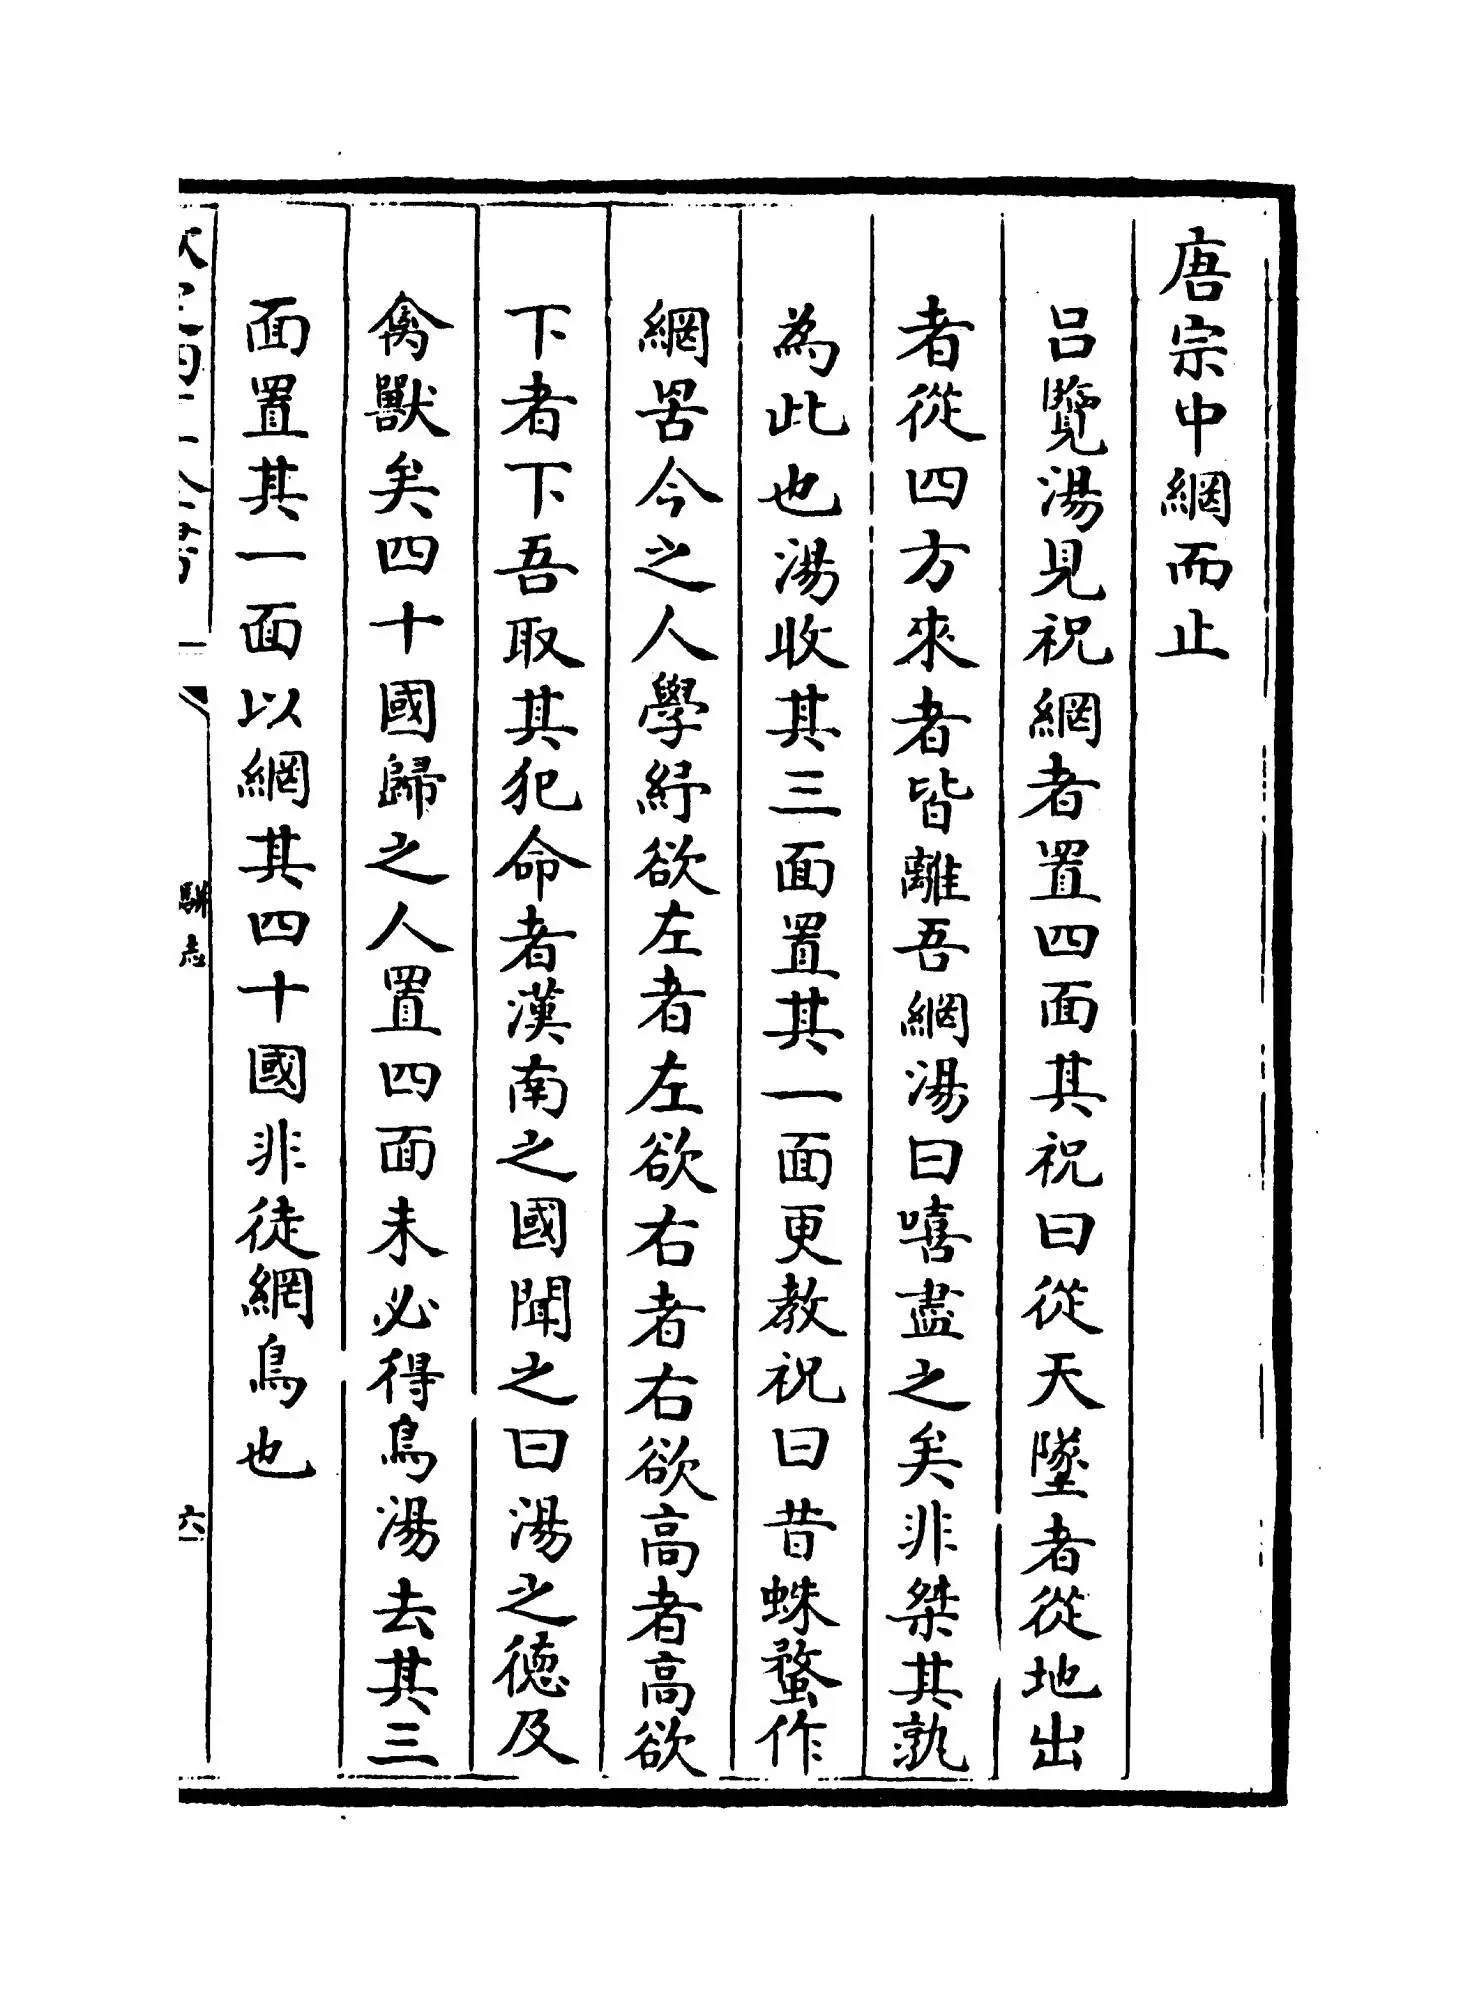 唐宗中網而止
呂覽湯見祝網者置四面其祝曰從天墜者從地出
者從四方來者皆離吾網湯曰嘻盡之矣非桀其孰
為此也湯收其三面置其一面更教祝曰昔蛛蝥作
網罟今之人學紓欲左者左欲右者右欲高者高欲
下者下吾取其犯命者漢南之國聞之曰湯之德及
禽獸矣四十國歸之人置四面未必得鳥湯去其三
面置其一面以網其四十國非徒網鳥也
駢志
六